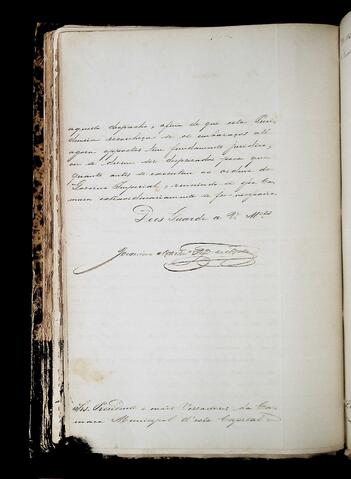 aquelle despacho, afim de que esta Presi-
dencia reconheça se os embaraços até
agora oppostos tem fundamento juridico,
ou se devem ser desprezados para que
quanto antes se executem as ordens do
Governo Imperial, reunindo-se essa Ca-
mara extraordinariamente se for necessario.
Deos Guarde a V. Mces
Srs. Presidente e mais Vereadores da Ca-
mara Municipal d'esta Capital